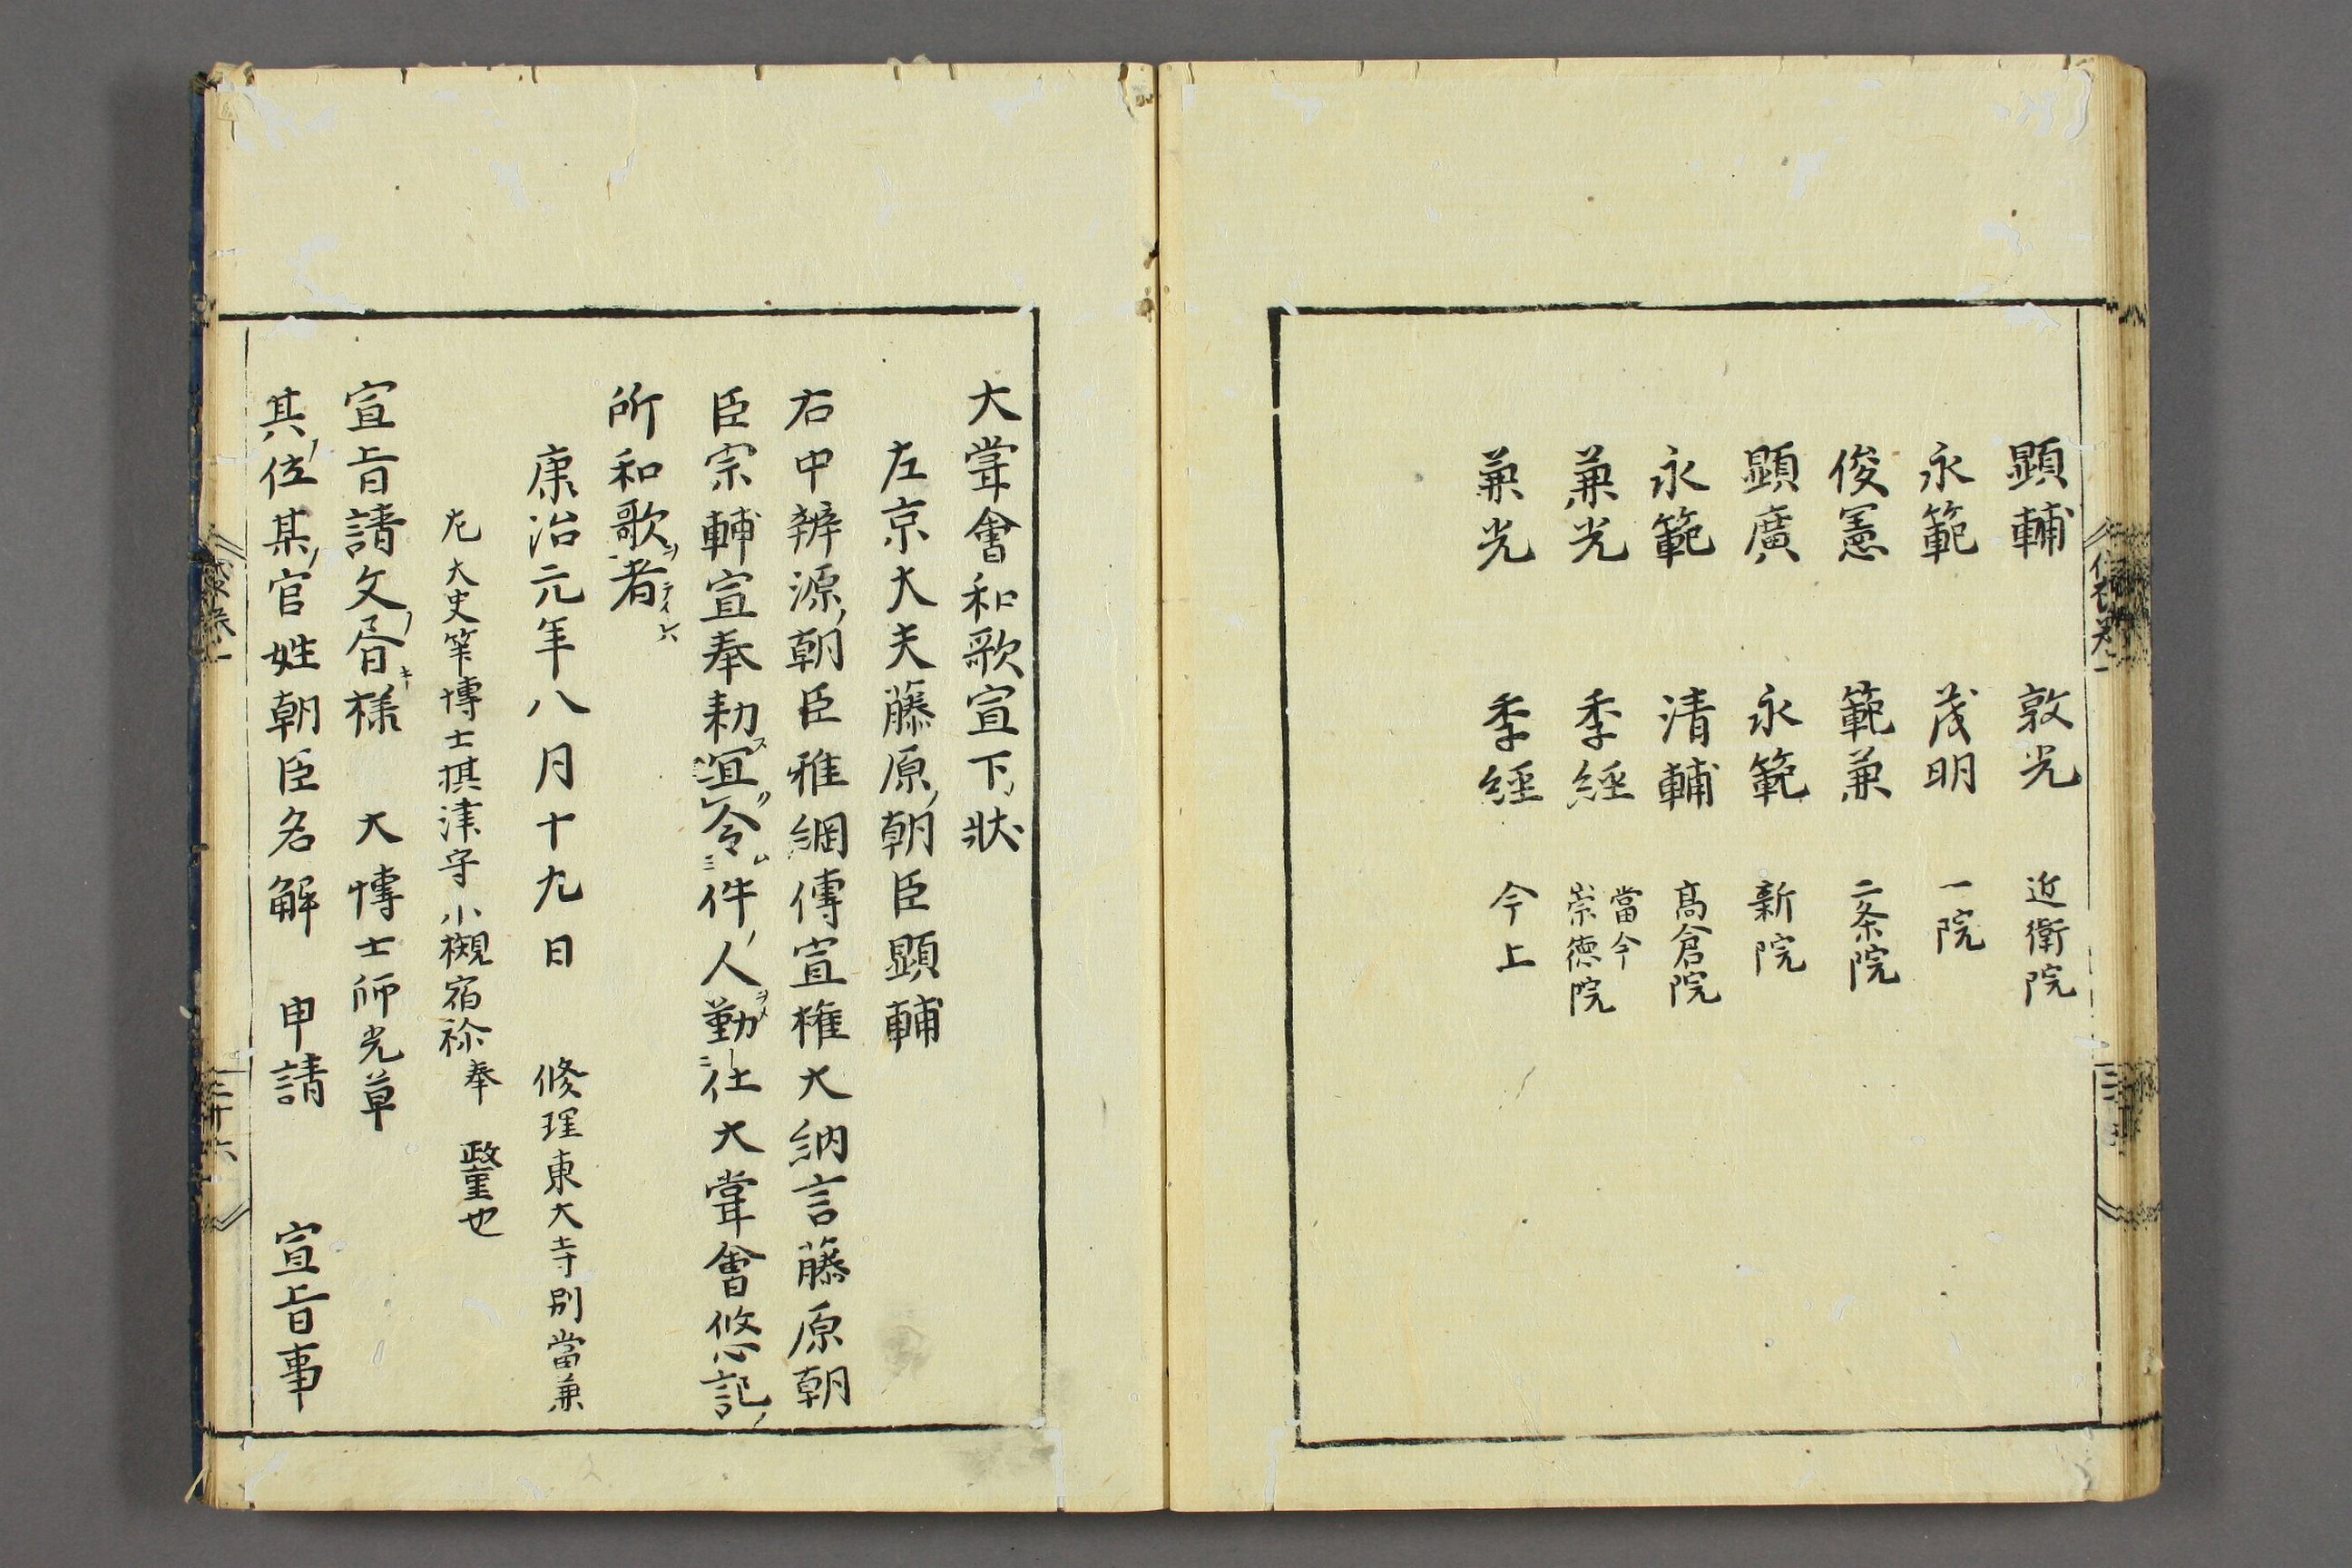 顕輔　敦光　近衛院
永範　茂明　一院
俊憲　範兼　二条院
顕廣　永範　新院
永範　清輔　髙倉院
兼光　季經　當今
崇徳院
兼光　季經　今上
大甞會和歌宣下ノ状
左京大夫藤原ノ朝臣顕輔
右中辨源ノ朝臣雅綱傳宣権大納言藤原朝
臣宗輔宣奉勅ス宜ク令ム件ノ人ヲメ勤二仕大甞會悠記ノ
所和歌ヲ者テイレハ
康治元年八月十九日　修理東大寺別當兼
左大史筭博士摂津守小槻宿祢奉　政重也
宣旨請文ノ昏キ様　大博士師光草
其ノ位某ノ官姓朝臣名解　申請　宣旨事